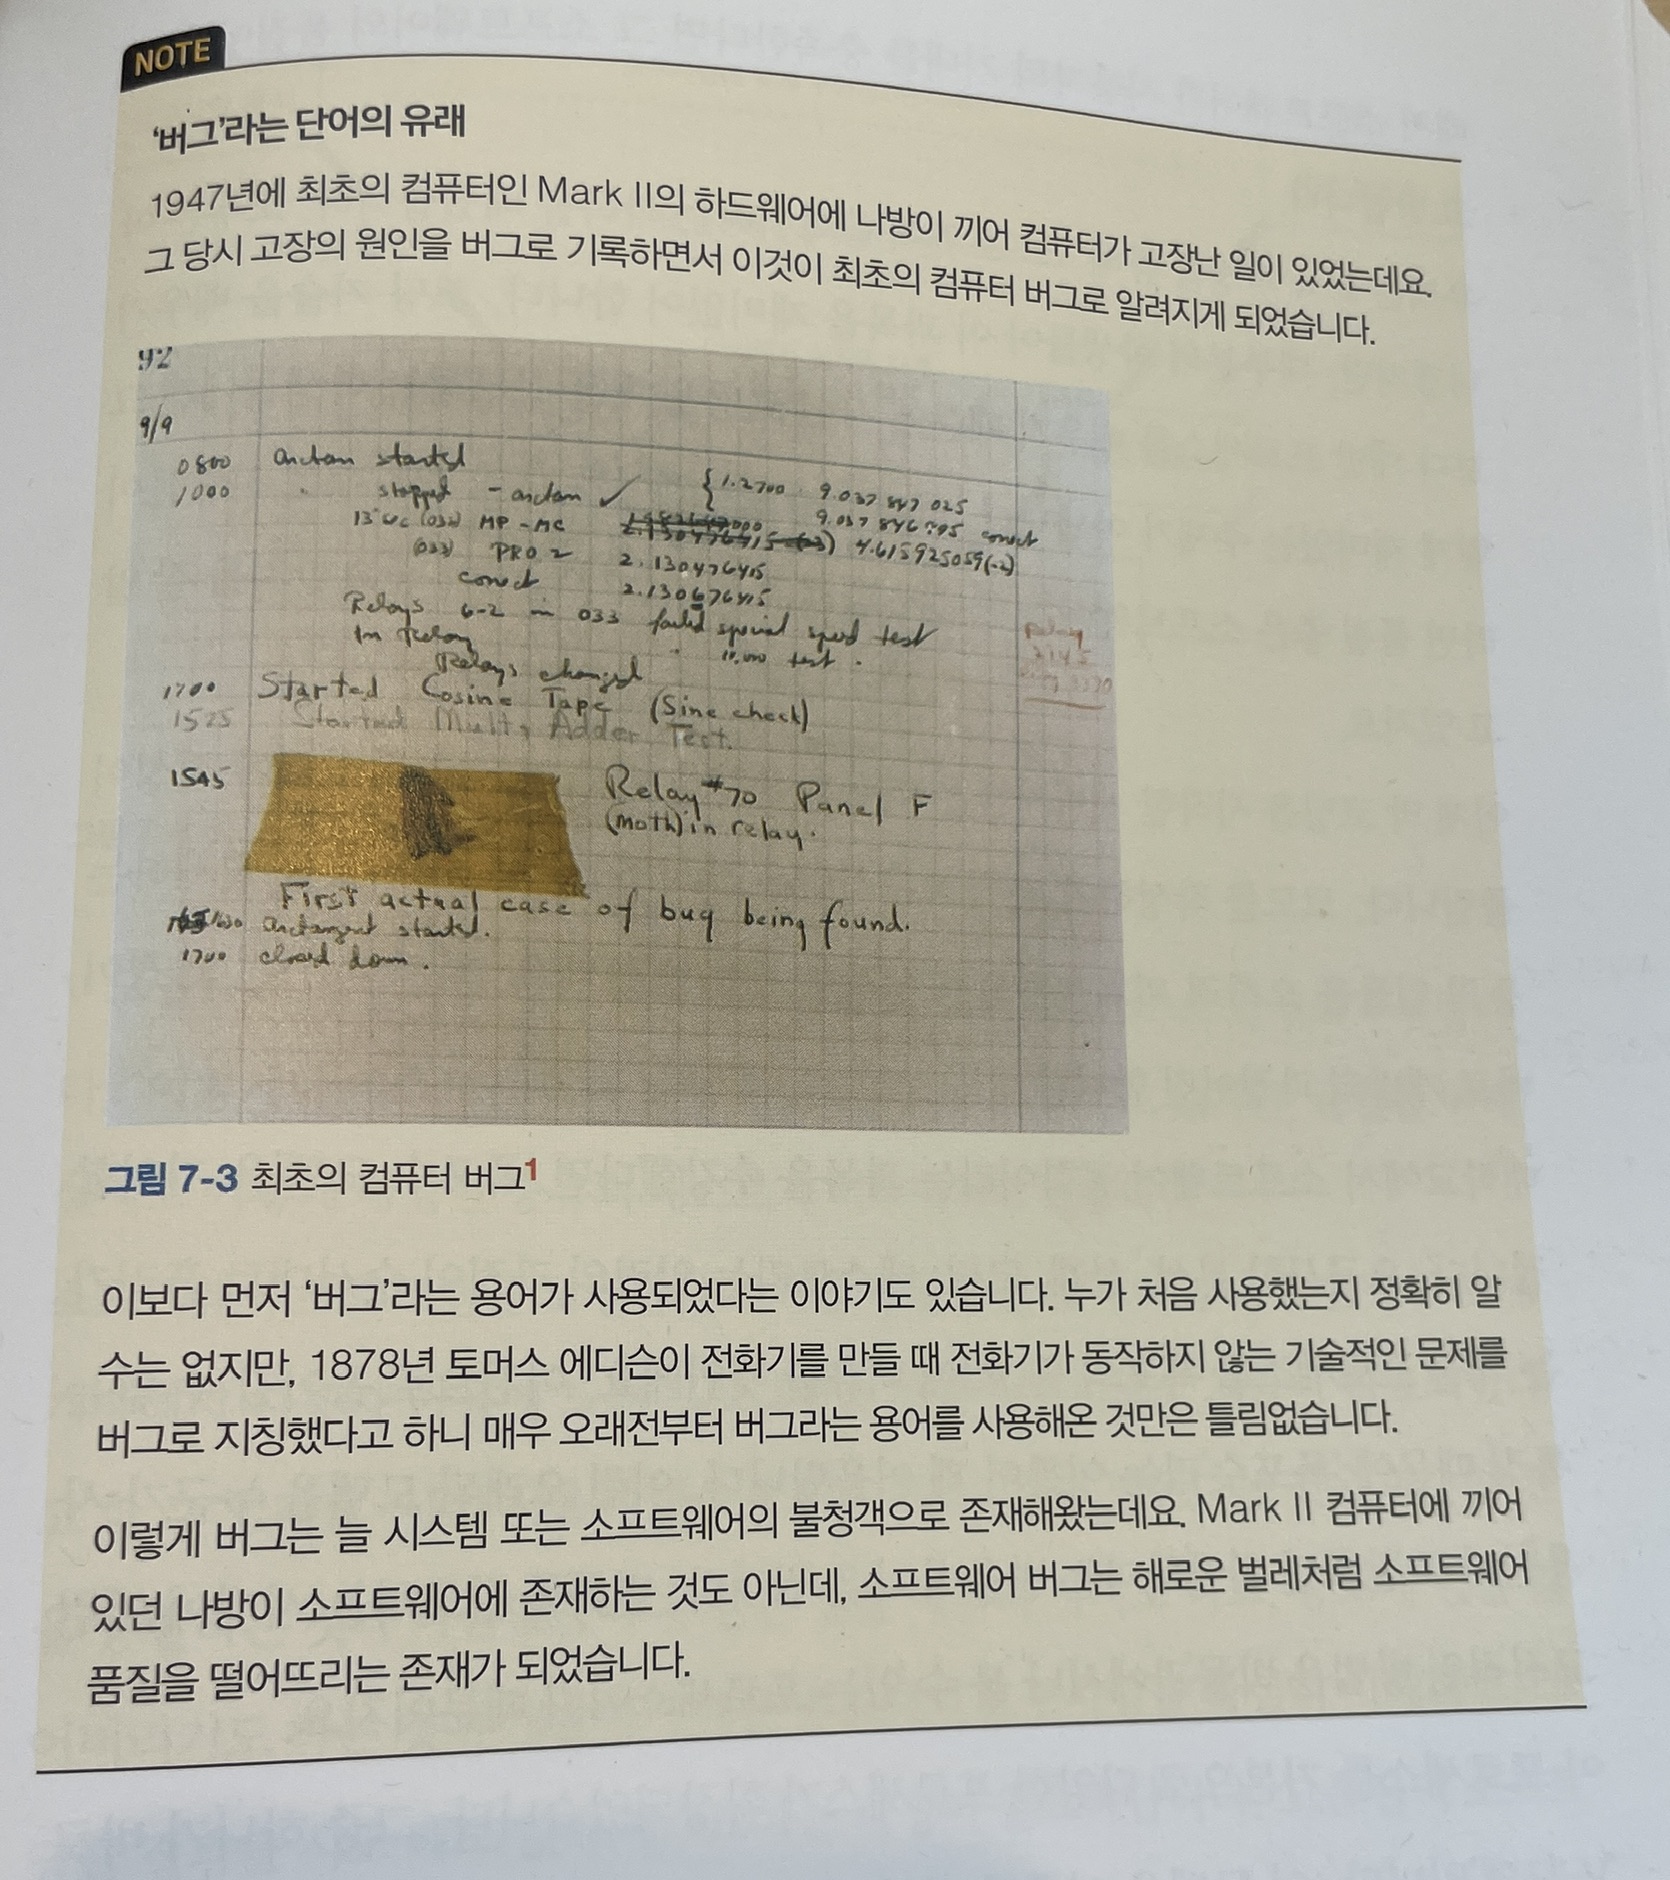 NOTE
'버그'라는 단어의 유래
1947년에 최초의 컴퓨터인 Mark II의 하드웨어에 나방이 끼어 컴퓨터가 고장난 일이 있었는데요.
그 당시 고장의 원인을 버그로 기록하면서 이것이 최초의 컴퓨터 버그로 알려지게 되었습니다.
92
9/9
0800 antan started
1000 " stopped - antan ✓ { 1.2700 9.037 847 025
13"UC (032) MP-MC 9.037 846 995 correct
4.615925059(-2)
(033) PRO 2 2.130476415
correct 2.130676415
Relays 6-2 in 033 failed special speed test
In Relay " 11.000 test.
Relays changed
1700 Started Cosine Tape (Sine check)
1525 Started Multi Adder Test.
1545 Relay #70 Panel F
(moth) in relay.
First actual case of bug being found.
1630 antangent started.
1700 closed down.
그림 7-3 최초의 컴퓨터 버그1
이보다 먼저 '버그'라는 용어가 사용되었다는 이야기도 있습니다. 누가 처음 사용했는지 정확히 알
수는 없지만, 1878년 토머스 에디슨이 전화기를 만들 때 전화기가 동작하지 않는 기술적인 문제를
버그로 지칭했다고 하니 매우 오래전부터 버그라는 용어를 사용해온 것만은 틀림없습니다.
이렇게 버그는 늘 시스템 또는 소프트웨어의 불청객으로 존재해왔는데요. Mark II 컴퓨터에 끼어
있던 나방이 소프트웨어에 존재하는 것도 아닌데, 소프트웨어 버그는 해로운 벌레처럼 소프트웨어
품질을 떨어뜨리는 존재가 되었습니다.